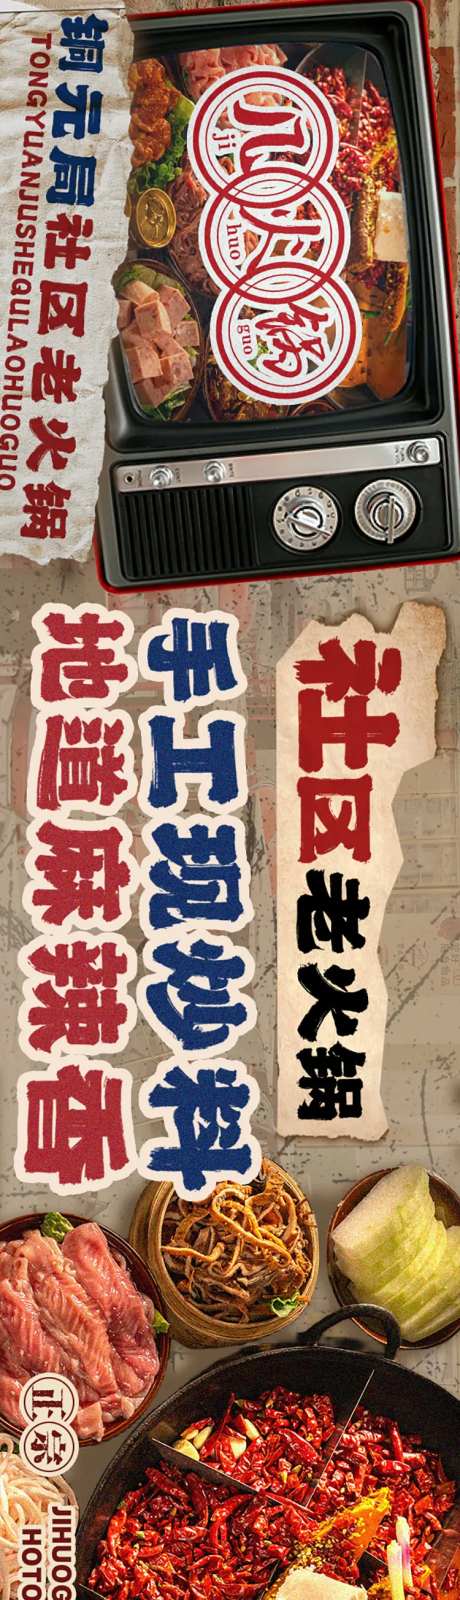 铜元局社区老火锅
TONGYUANJUSHEQULAOHUOGUO
几火锅
ji huo guo
社区老火锅
手工现炒料
地道麻辣香
正宗
JIHUOG
HOTO